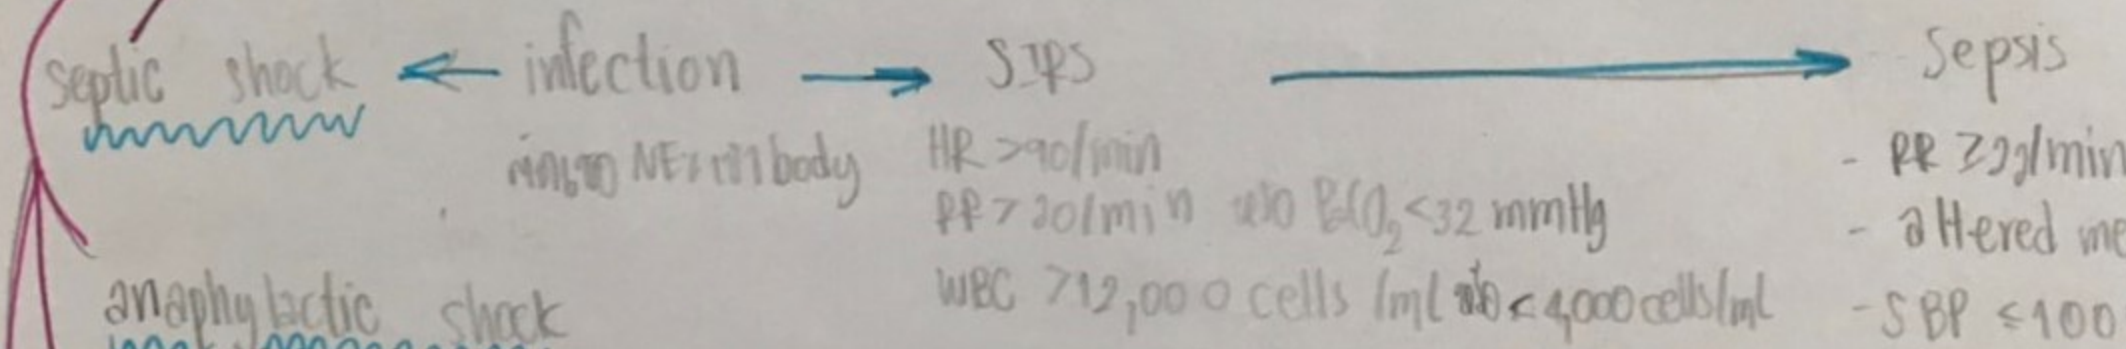 septic shock ← infection → SIRS → Sepsis
body
HR >90/min
RR > 20/min หรือ PaCO₂ <32 mmHg
WBC >12,000 cells /ml หรือ < 4,000 cells/ml
- RR ≥22/min
- altered me
- SBP ≤100
anaphylactic shock